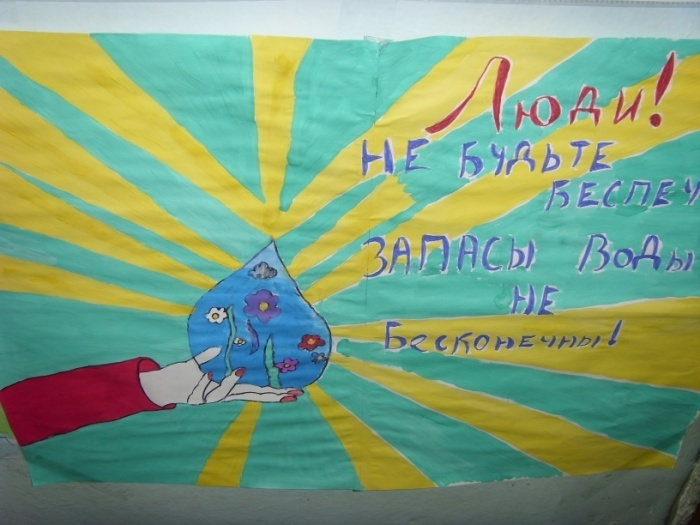 Люди!
НЕ БУДЬТЕ
БЕСПЕЧ
ЗАПАСЫ ВОДЫ
НЕ
Бесконечны!